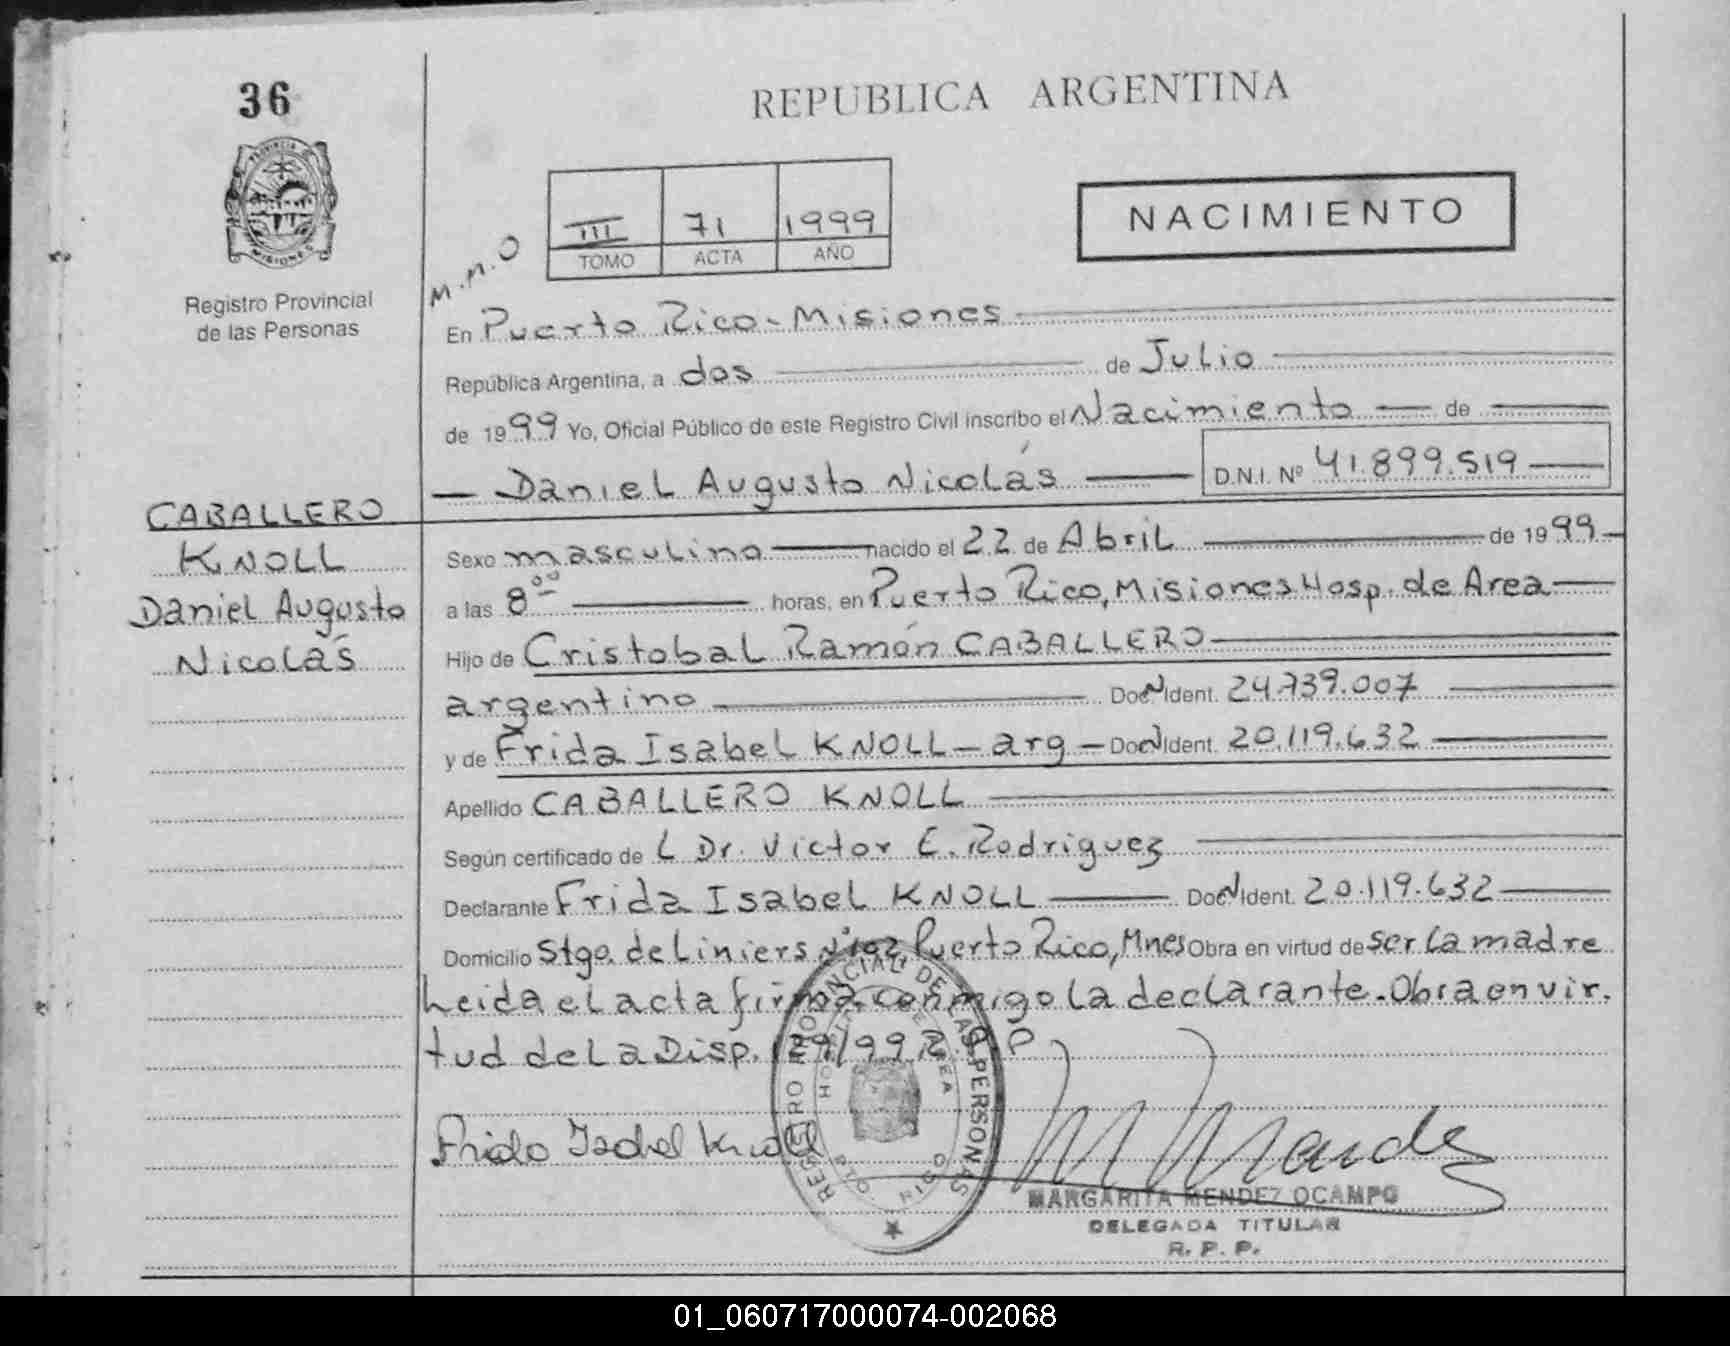 36
REPUBLICA ARGENTINA
PROVINCIA DE
MISIONES
Registro Provincial
de las Personas
III 71 1999
TOMO ACTA AÑO
NACIMIENTO
M.M.O
En Puerto Rico - Misiones
República Argentina, a dos de Julio
de 1999 Yo, Oficial Público de este Registro Civil inscribo el Nacimiento de
Daniel Augusto Nicolás D.N.I. Nº 41.899.519
CABALLERO
KNOLL
Daniel Augusto
Nicolás
Sexo masculino nacido el 22 de Abril de 1999
a las 8 00 horas, en Puerto Rico, Misiones Hosp. de Area
Hijo de Cristobal Ramón CABALLERO
argentino Doc N Ident. 24.739.007
y de Frida Isabel KNOLL - arg - Doc N Ident. 20.119.632
Apellido CABALLERO KNOLL
Según certificado de L Dr. Victor E. Rodriguez
Declarante Frida Isabel KNOLL Doc N Ident. 20.119.632
Domicilio Stgo. de Liniers Puerto Rico, Mnes Obra en virtud de ser la madre
Leida el acta firma conmigo la declarante. Obra en vir.
tud de la Disp. 29/99 R.P.P
Frida Isabel Knoll
REGISTRO PROVINCIAL DE LAS PERSONAS
HOSPITAL DE AREA
PTO. RICO
M Mendez
MARGARITA MENDEZ OCAMPO
DELEGADA TITULAR
R. P. P.
01_060717000074-002068